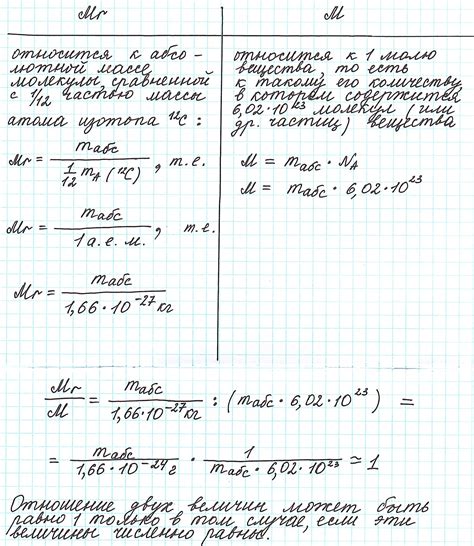 Mr
M
относится к абсо-
лютной массе
молекулы, сравненной
с 1/12 частью массы
атома изотопа ¹²C :
Mr = mабс / (1/12 mА (¹²C)) , т.е.
Mr = mабс / 1 а.е.м. , т.е.
Mr = mабс / 1,66 · 10⁻²⁷ кг
относится к 1 молю
вещества, то есть
к такому его количеству,
в котором содержится
6,02 · 10²³ молекул (или
др. частиц) вещества
M = mабс · NA
M = mабс · 6,02 · 10²³
Mr / M = mабс / 1,66 · 10⁻²⁷ кг : (mабс · 6,02 · 10²³) =
= mабс / 1,66 · 10⁻²⁴ г · 1 / mабс · 6,02 · 10²³ ≃ 1
Отношение двух величин может быть
равно 1 только в том случае, если эти
величины численно равны.